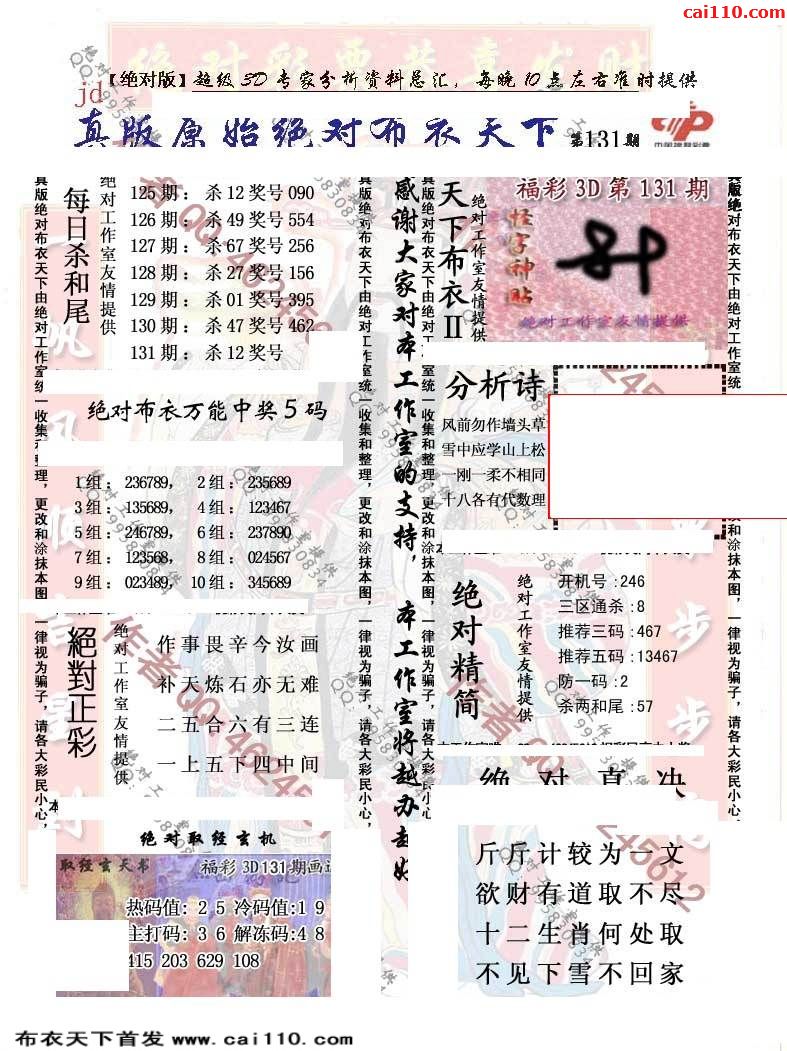 cai110.com
【绝对版】超级3D专家分析资料总汇，每晚10点左右准时提供
jd
真版原始绝对布衣天下 第131期
每日杀和尾
绝对工作室友情提供
125期：杀12奖号090
126期：杀49奖号554
127期：杀67奖号256
128期：杀27奖号156
129期：杀01奖号395
130期：杀47奖号462
131期：杀12奖号
绝对布衣万能中奖5码
1组：236789， 2组：235689
3组：135689， 4组：123467
5组：246789， 6组：237890
7组：123568， 8组：024567
9组：023489， 10组：345689
絕對正彩
绝对工作室友情提供
作事畏辛今汝画
补天炼石亦无难
二五合六有三连
一上五下四中间
绝对取经玄机
取经玄天书 福彩3D131期画
热码值：2 5 冷码值:1 9
主打码：3 6 解冻码:4 8
415 203 629 108
真版绝对布衣天下由绝对工作室统一收集和整理，更改和涂抹本图，一律视为骗子，请各大彩民小心，
感谢大家对本工作室的支持，本工作室将越办越好
真版绝对布衣天下由绝对工作室统一收集和整理，更改和涂抹本图，一律视为骗子，请各大彩民小心，
天下布衣Ⅱ
绝对工作室友情提供
福彩3D第131期
怪字神贴
绝对工作室友情提供
分析诗
风前勿作墙头草
雪中应学山上松
一刚一柔不相同
十八各有代数理
绝对精简
绝对工作室友情提供
开机号:246
三区通杀:8
推荐三码:467
推荐五码:13467
防一码:2
杀两和尾:57
绝对真决
斤斤计较为一文
欲财有道取不尽
十二生肖何处取
不见下雪不回家
布衣天下首发 www.cai110.com